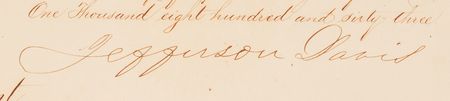 One Thousand eight hundred and sixty-three
Jefferson Davis